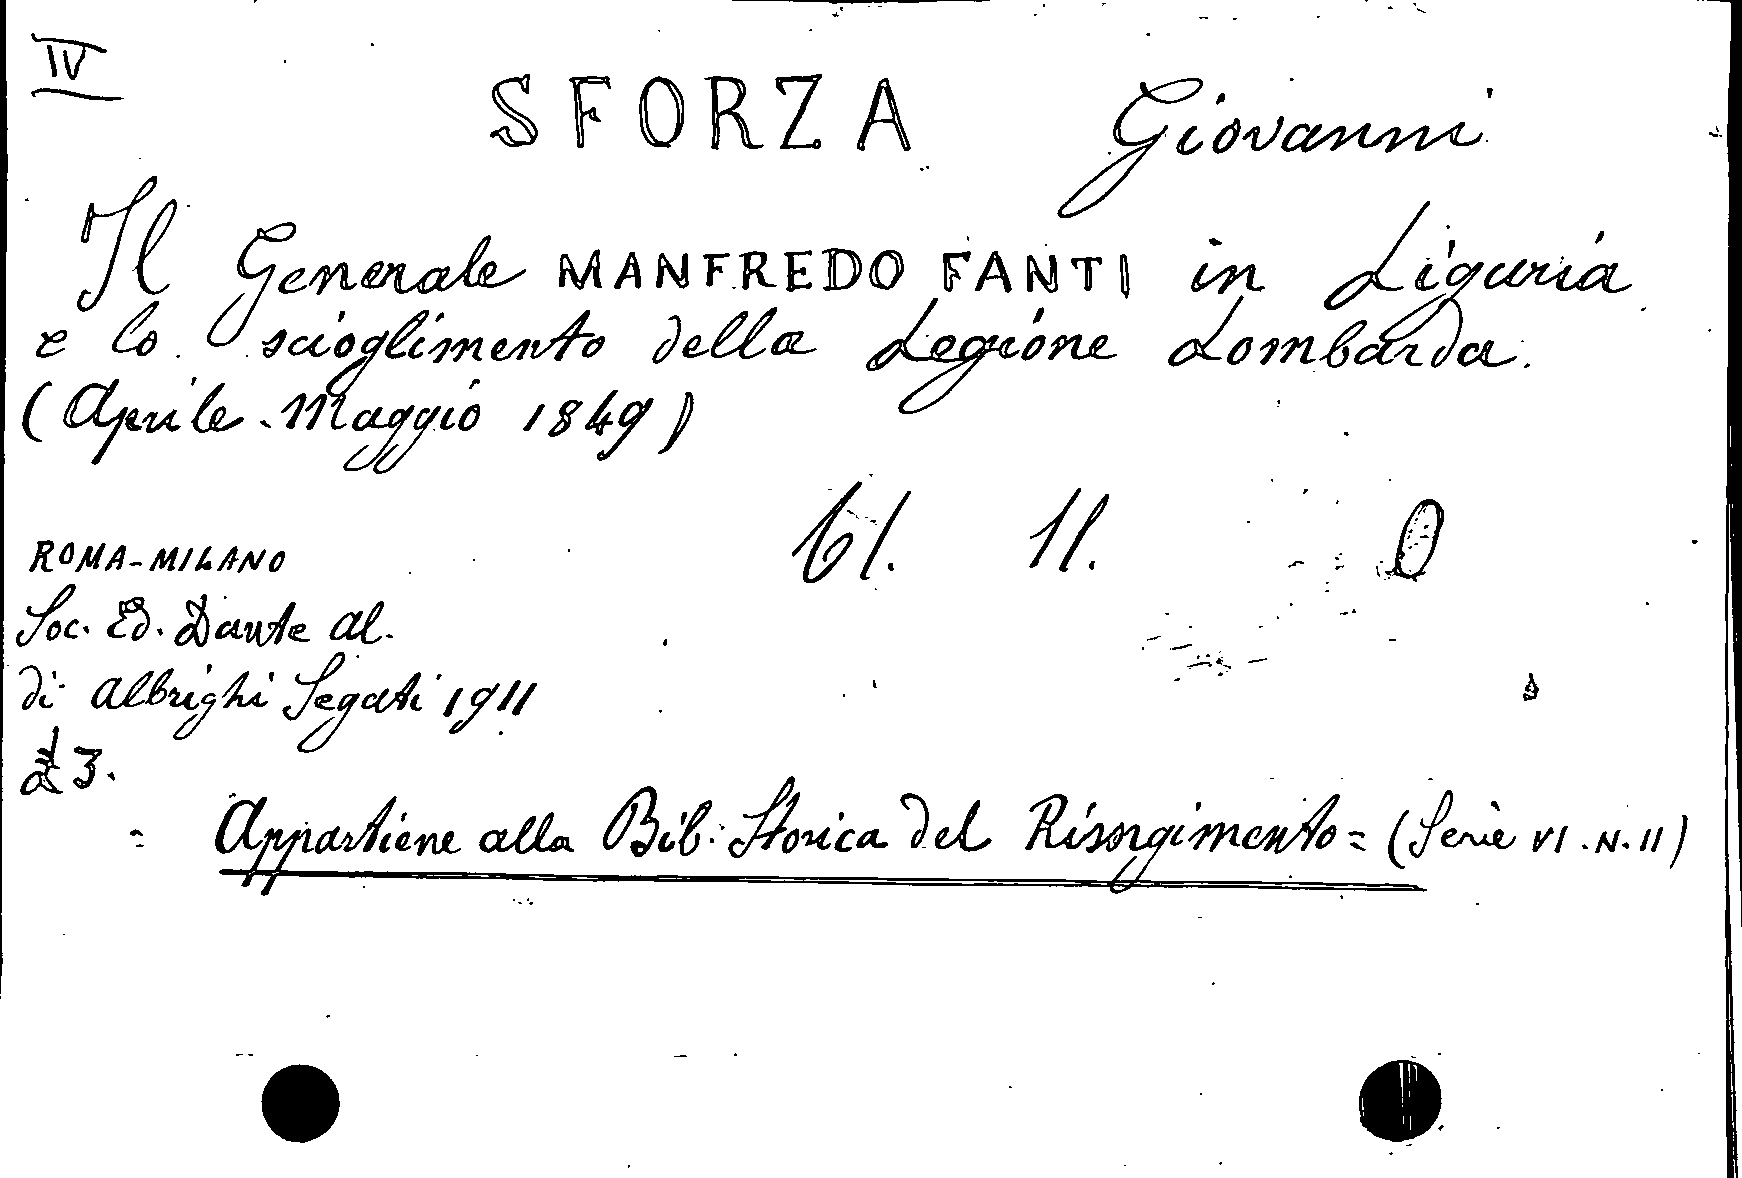 IV
SFORZA Giovanni
Il Generale MANFREDO FANTI in Liguria
e lo scioglimento della Legione Lombarda.
(Aprile-Maggio 1849)
61. 11. 0
ROMA-MILANO
Soc. Ed. Dante Al.
di Albrighi Segati 1911
£ 3.
= Appartiene alla Bib. Storica del Risorgimento = (Serie VI. N. 11)